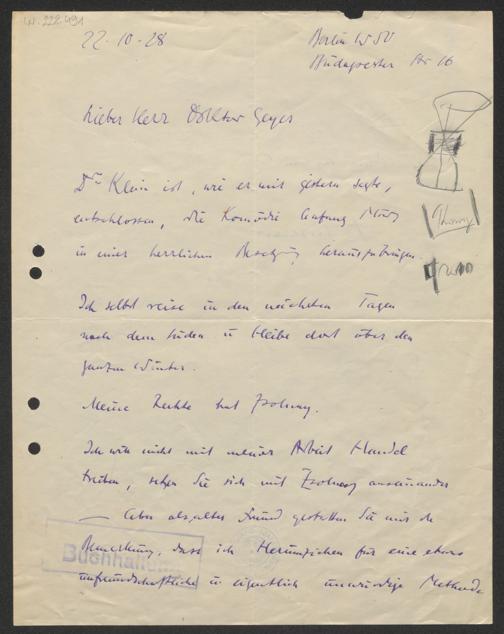 LN. 222.491
22-10-28
Berlin W 50
Budapester Str 16
Lieber Herr Doktor Geyer
Dr Klein ist, wie er mir gestern sagte,
entschlossen, die Komödie Anfang März
in einer herrlichen Besetzung herauszubringen.
Ich selbst reise in den nächsten Tagen
nach dem Süden u bleibe dort über den
ganzen Winter.
Meine Rechte hat Zsolnay.
Ich will nicht mit meiner Arbeit Handel
treiben, setzen Sie sich mit Zsolnay auseinander
— Aber als alter Freund gestatten Sie mir die
Bemerkung, dass ich Herumziehen für eine etwas
unfreundschaftliche u eigentlich unwürdige Methode
Buchhaltung